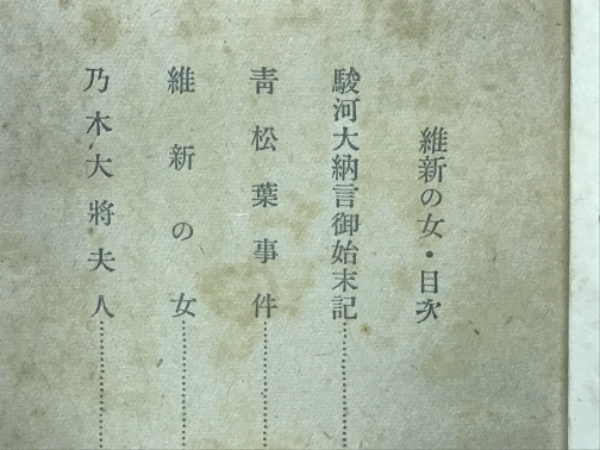 維新の女・目次
駿河大納言御始末記…………
青松葉事件…………
維新の女…………
乃木大將夫人…………